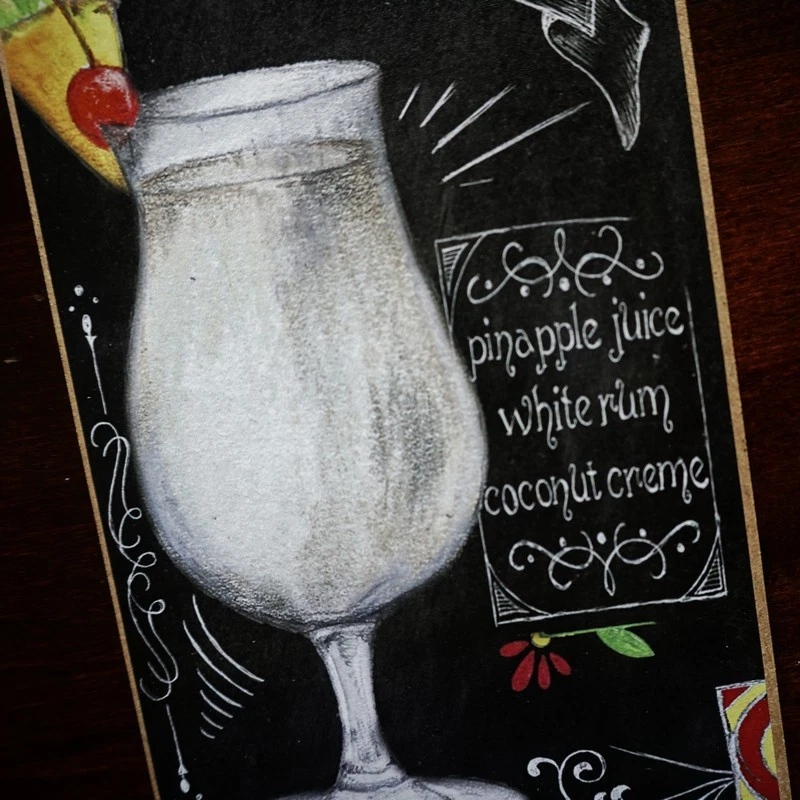 pinapple juice
white rum
coconut creme